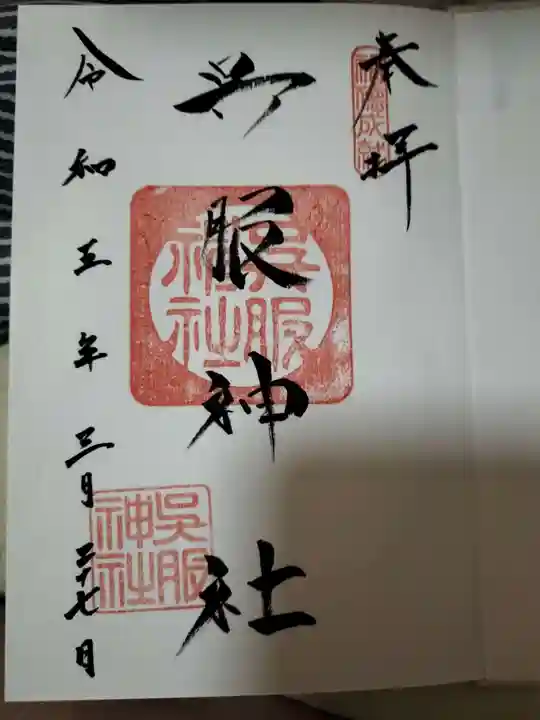 奉拝
呉服神社
令和五年三月二十七日
呉服
神社
呉服
神社